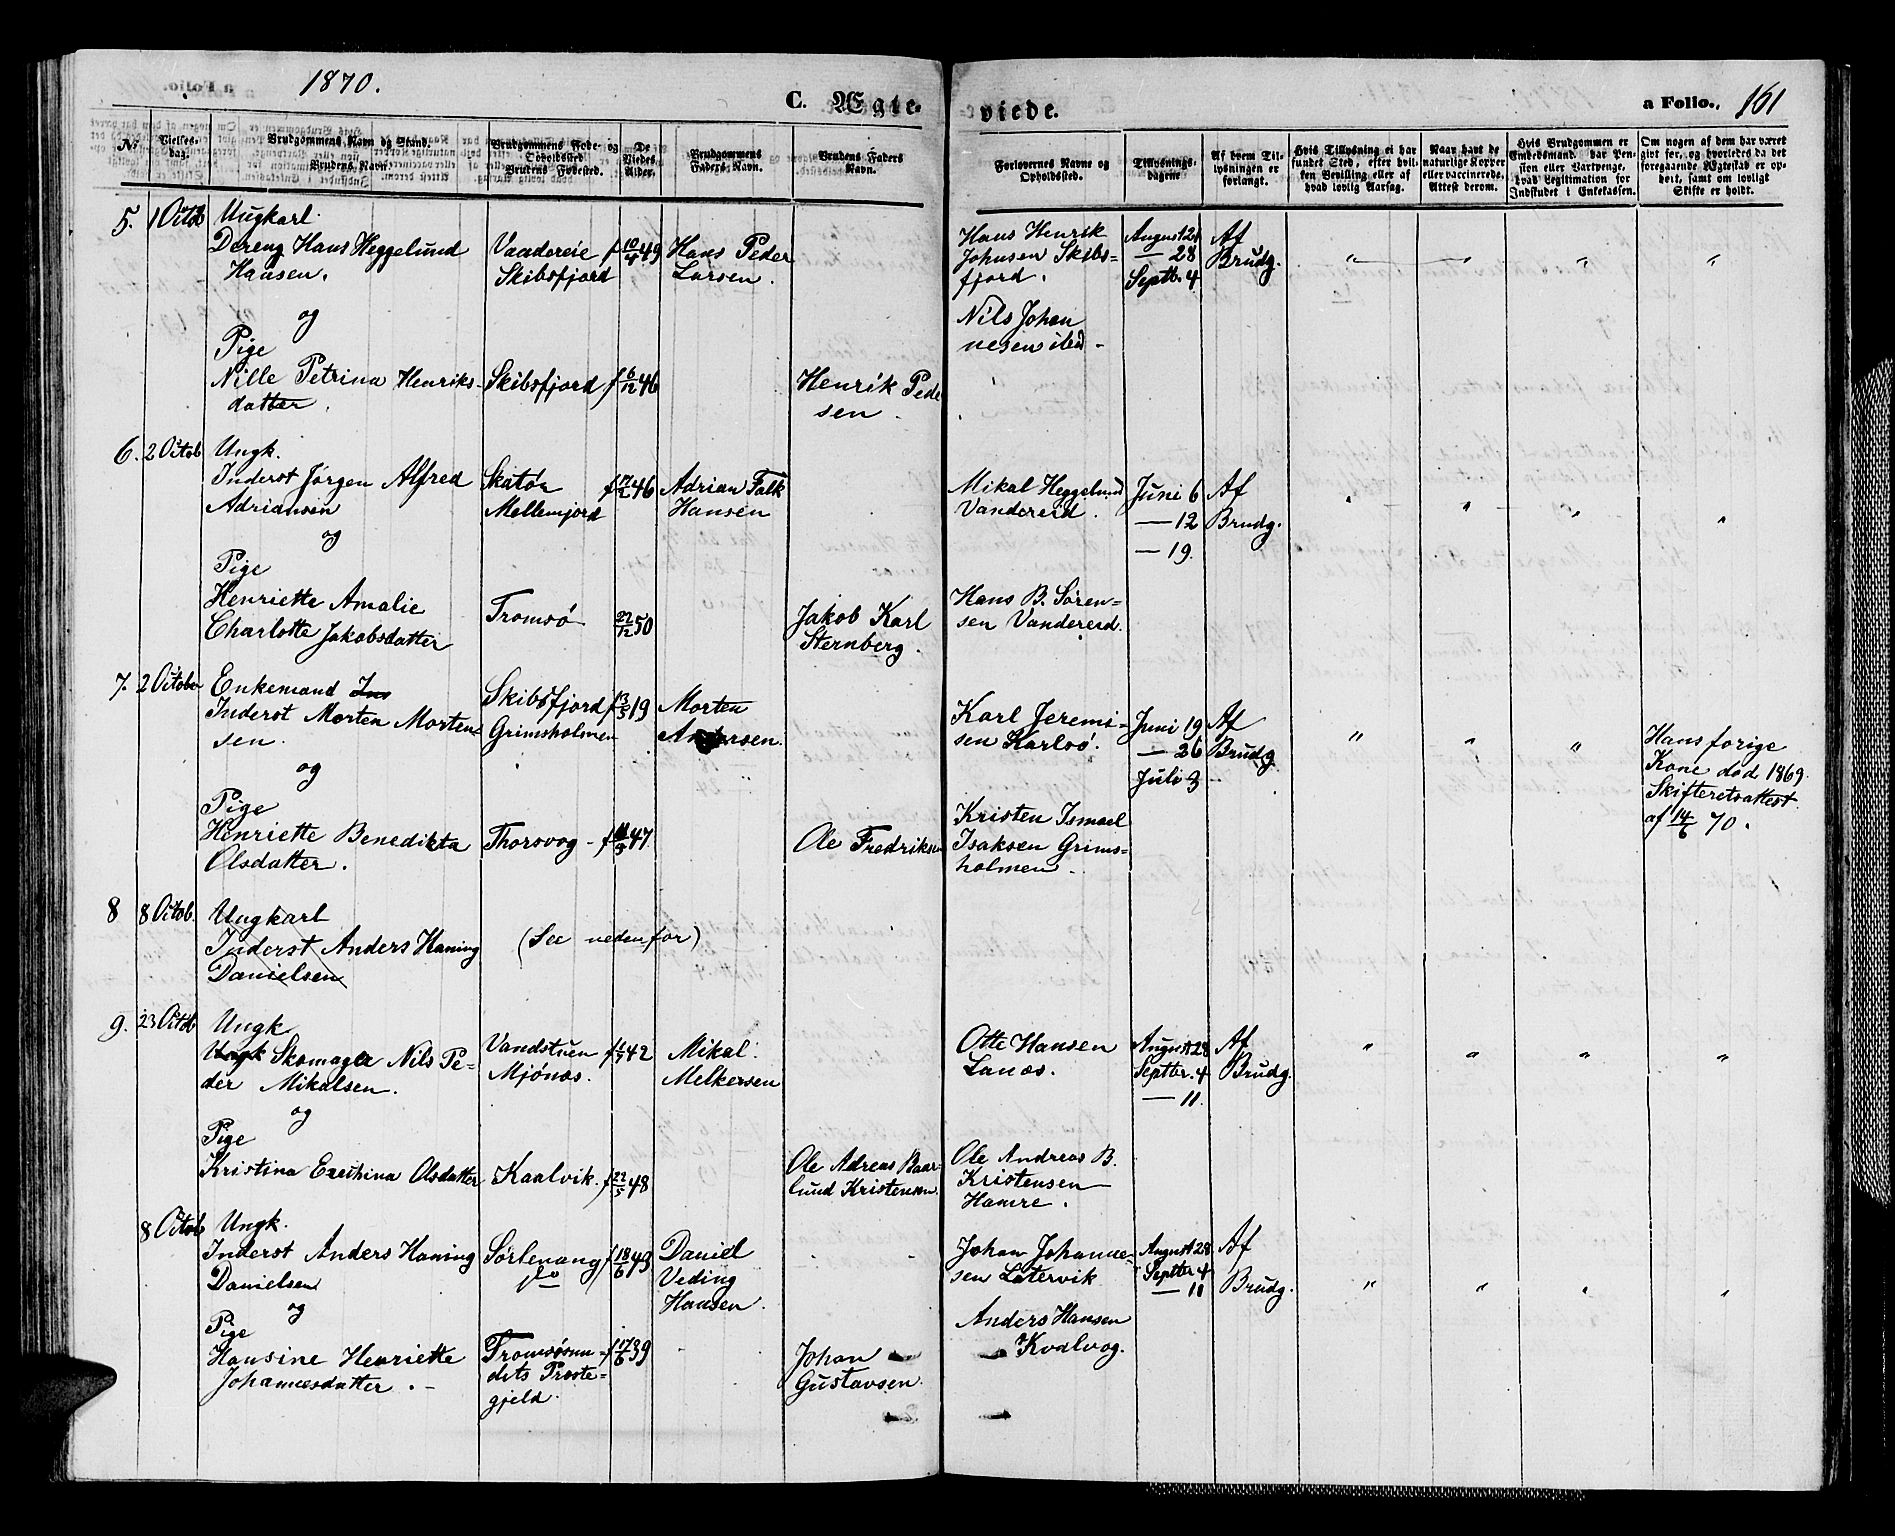 1870.
C. Ægte-
viede.
a Folio. 161
No
Vielses-
dag.
Brudgommens Navn og Stand.
Brudens Navn.
Brudgommens Føde- og
Opholdssted
Brudens Fødested.
De
Viedes
Alder.
Brudgommens
Faders Navn.
Brudens Faders
Navn.
Forlovernes Navne og
Opholdssted.
Tillysnings-
dagene
Af hvem Til-
lysningen er
forlangt.
Hvis Tillysning ei har
fundet Sted, efter hvil-
ken Bevilling eller af
hvad lovlig Aarsag.
Naar havt de
naturlige Kopper
eller vaccinerede,
Attest derom.
Hvis Brudgommen er
Embedsmand, har Pen-
sion eller Vartpenge,
hvad Legitimation for
Indskudt i Enkekassen.
Om nogen af dem har været
gift før, og hvorledes da det
foregaaende Ægteskab er op-
hørt, samt om lovligt
Skifte er holdt.
5. 1 Octob
Ungkarl
Dreng Hans Heggelund
Hansen.
Vaadereie
Skibsfjord
f 10/4 49
Hans Peder
Larsen.
Hans Henrik
Johnsen Skibs-
fjord.
August 21
— 28
Septb. 4
Af
Brudg.
og
Nils Johan
nesen ibid -
Pige
Nille Petrina Henriks-
datter.
Skibsfjord
f 6/12 46
Henrik Pede
sen
6. 2 Octob
Ungk.
Inderst Jørgen Alfred
Adriansen
Skatør
Mellemjord
f 17/2 46
Adrian Falk
Hansen
Mikal Heggelund
Vandereid.
Juni 6
— 12
— 19.
Af
Brudg.
og
Pige
Henriette Amalie
Charlotte Jakobsdatter
Tromsø
22/12 50
Jakob Karl
Sternberg.
Hans B. Søren-
sen Vandereid.
7. 2 Octobr
Enkemand Ins
Inderst Morten Morten-
sen.
Skibsfjord
Grimsholmen
f 13/3 19
Morten
Andersen.
Karl Jeremi-
sen Karlsø.
Juni 19
— 26
Juli 3
Af
Brudg
Hans forige
Kone død 1869.
Skifteretsattest
af 14/6 70.
og
Pige
Henriette Benedikta
Olsdatter.
Thorsvog
47
Ole Fredriksen
Kristen Ismael
Isaksen Grims-
holmen.
8 8 Octob.
Ungkarl
Inderst Anders Haning
Danielsen
(See nedenfor)
9. 23 Octob
Ungk
Ungk Skomager Nils Pe-
der Mikalsen.
Vandstuen
Mjönæs.
f 1/7 42
Mikal
Melkersen
Otte Hansen
Lanæs.
August 28
Septbr. 4
— 11.
Af
Brudg.
og
Pige
Kristina Exechina Olsdatter
Kaalvik.
f 22/5 48
Ole Adreas Baar-
lund Kristensen.
Ole Andreas B.
Kristensen
Hamre.
8 Octob
Ungk.
Inderst Anders Haning
Danielsen
Sørlenang
do
f 18/6 43
Daniel
Veding
Hansen.
Johan Johanne-
sen Latervik
August 28
Septbr 4
— 11
Af
Brudg.
og
Pige
Hansine Henriette
Johannesdatter. -
Tromsøsun-
dets Præste-
gjeld.
f 17/6 39
Johan
Gustavsen.
Anders Hansen
Kvalvog.